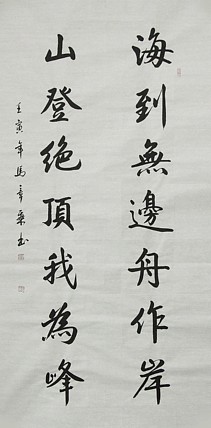 海到無邊舟作岸
山登絕頂我為峰
壬寅年馬章乘書